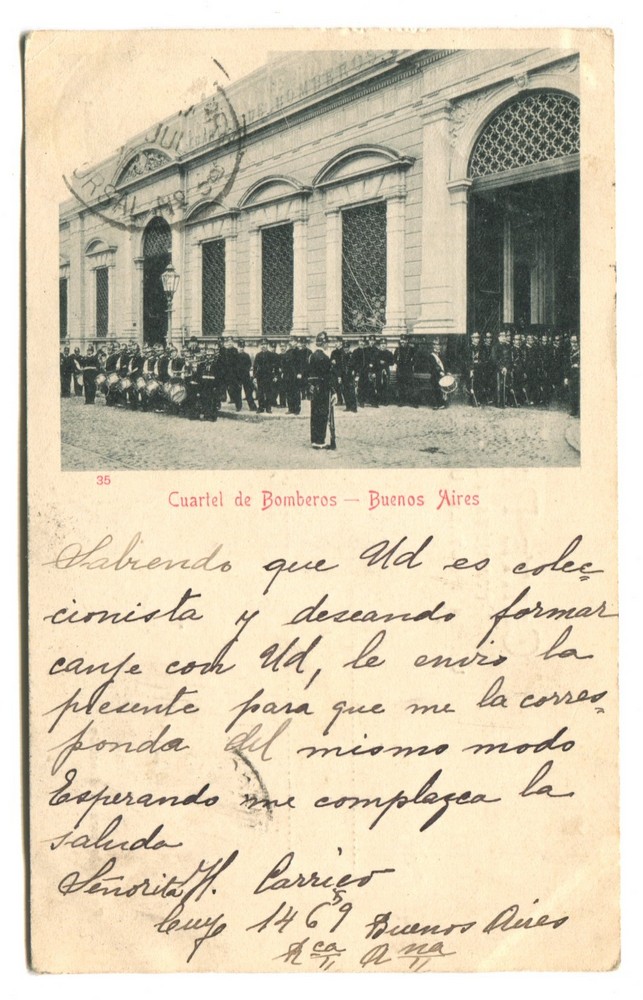 DE BOMBEROS
JUL
35
Cuartel de Bomberos — Buenos Aires
Sabiendo que Ud es colec-
cionista y deseando formar
canje con Ud, le envio la
presente para que me la corres-
ponda del mismo modo
Esperando me complazca la
saluda
Señorita H. Carrico
Cuyo 1469 Buenos Aires
Rca Ana